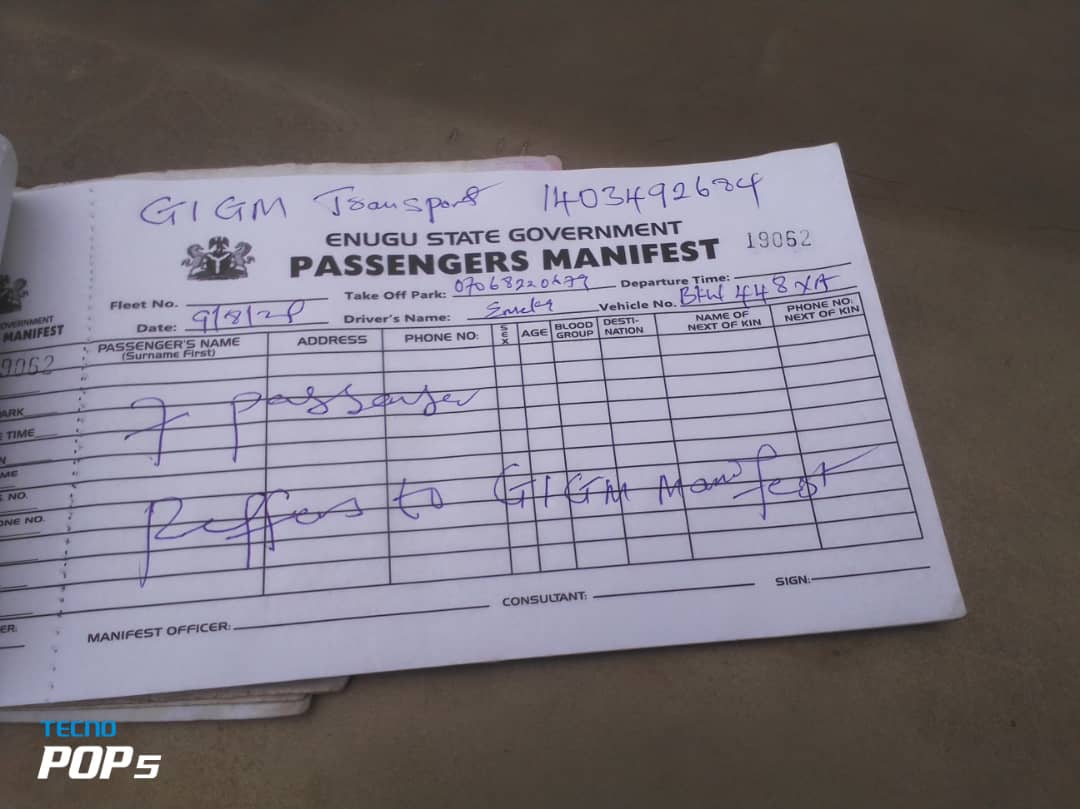 GIGM Transport 1403492684
ENUGU STATE GOVERNMENT
PASSENGERS MANIFEST 19062
Fleet No. Take Off Park: 07068220679 Departure Time:
Date: 9/8/28 Driver's Name: Emeka Vehicle No. BKW 448 XA
PASSENGER'S NAME (Surname First) ADDRESS PHONE NO: SEX AGE BLOOD GROUP DESTI-NATION NAME OF NEXT OF KIN PHONE NO: NEXT OF KIN
7 passenger
Reffers to GIGM Manifest
MANIFEST OFFICER: CONSULTANT: SIGN:
OVERNMENT
MANIFEST
9062
PARK
TIME
ME
NO.
ONE NO.
ER:
TECNO
POP 5